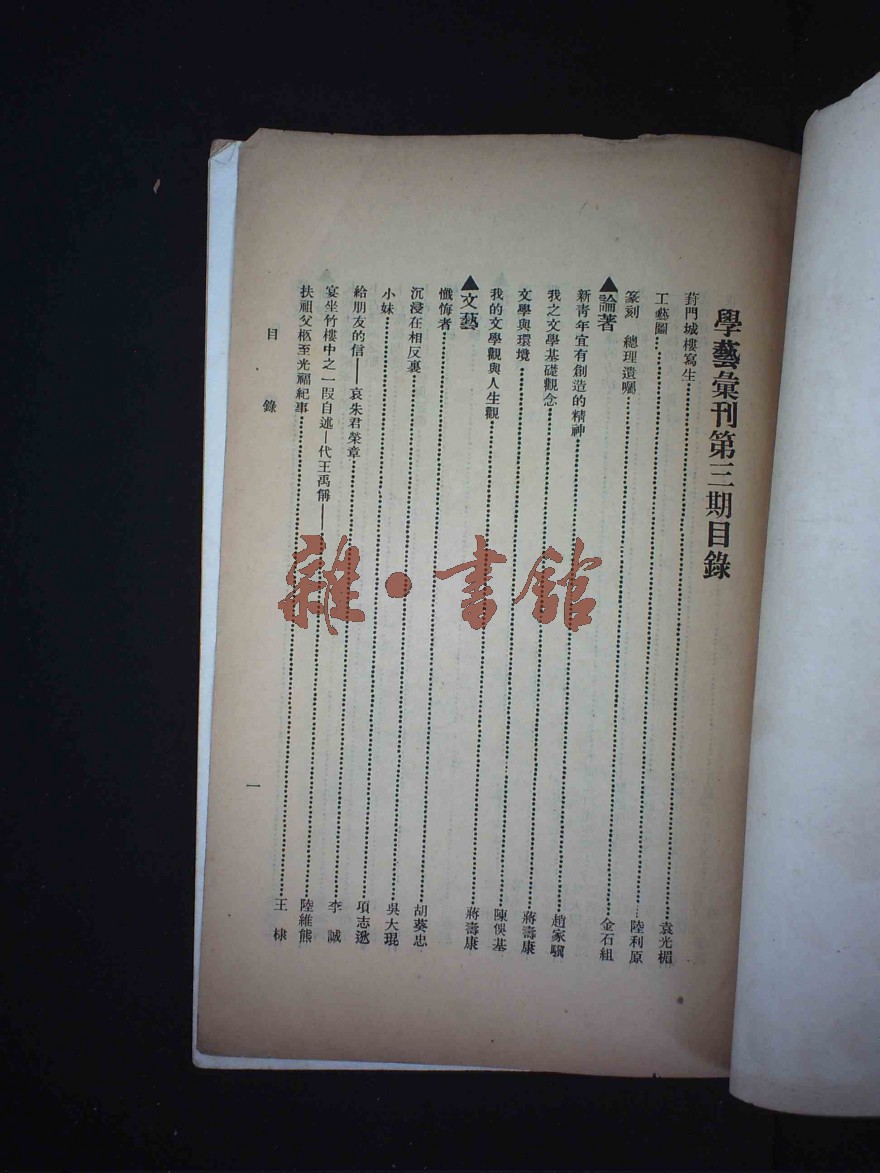 學藝彙刊第三期目錄
葑門城樓寫生 袁光楣
工藝圖 陸利原
篆刻 總理遺囑 金石組
▲論著
新青年宜有創造的精神 趙家騆
我之文學基礎觀念 蔣壽康
文學與環境 陳俁基
我的文學觀與人生觀 蔣壽康
▲文藝
懺悔者 胡葵忠
沉浸在相反裏 吳大琨
小妹 項志逖
給朋友的信——哀朱君榮章 李誠
宴坐竹樓中之一段自述—代王禹偁—— 陸維熊
扶祖父柩至光福紀事 王棣
目錄
一
雜·書館